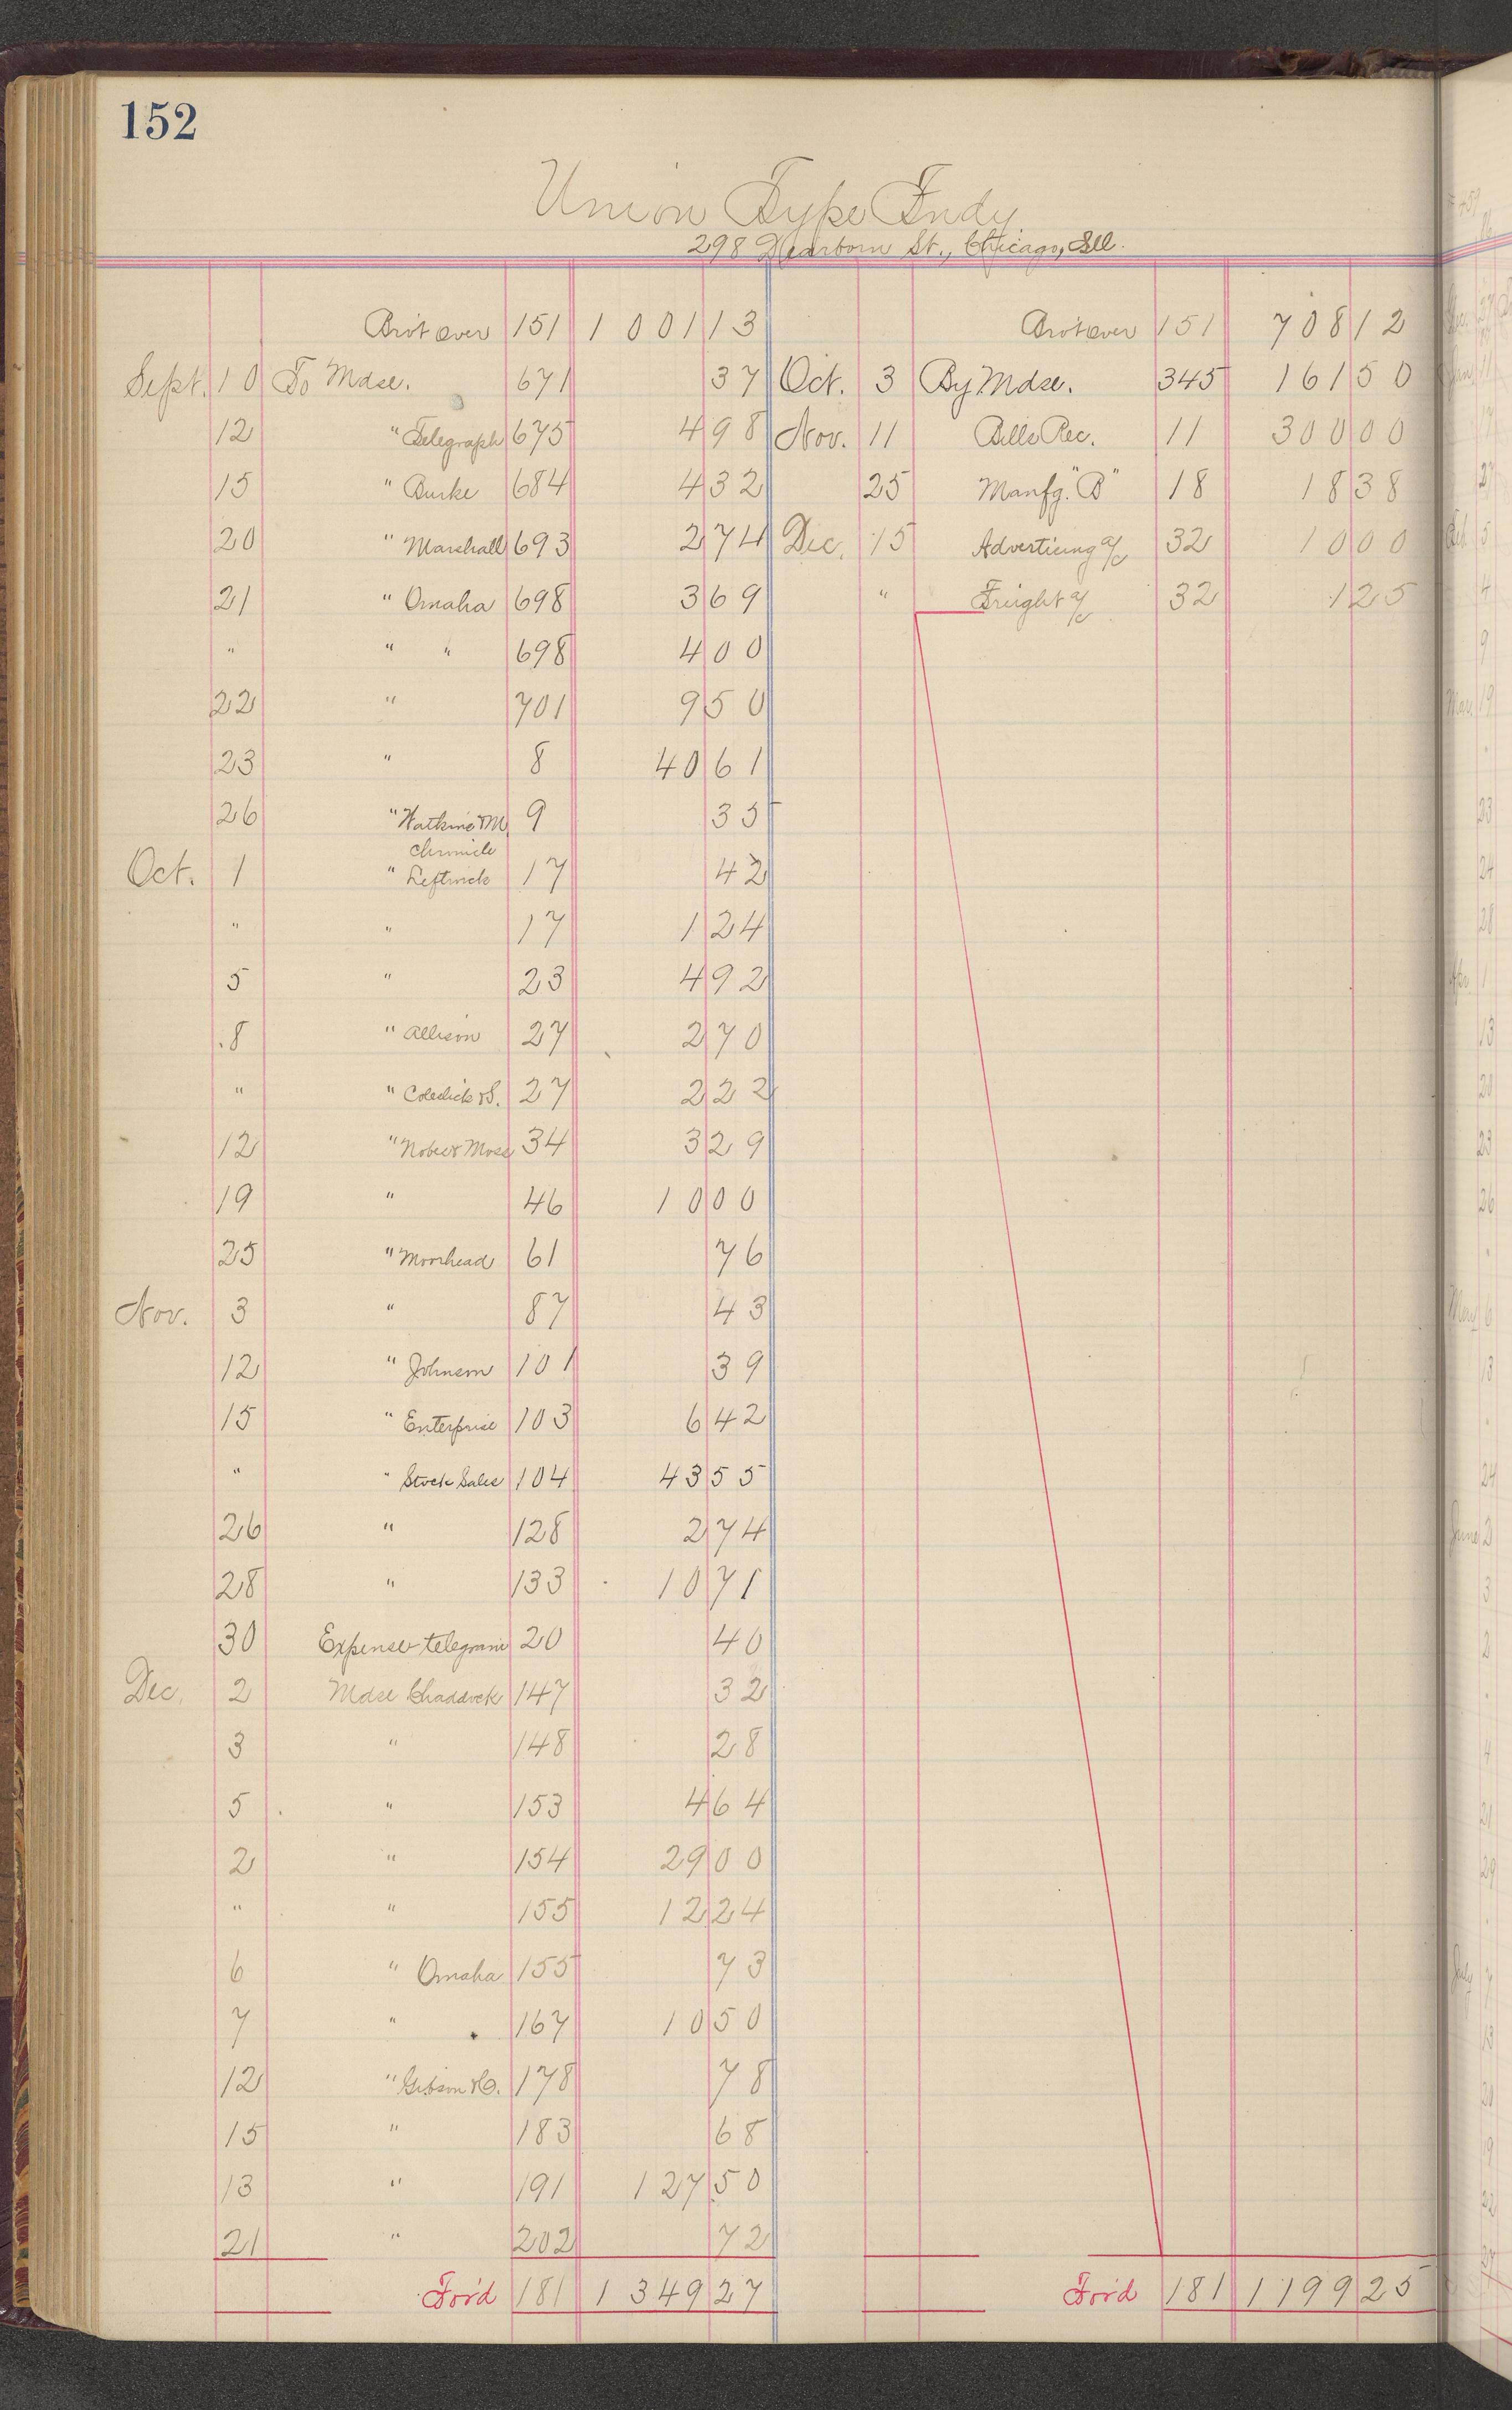 152
Union Type Fndy
298 Dearborn St., Chicago, Ill.
Bro't over 151 1 001 13
Sept. 10 To Mdse. 671 37
12 " Telegraph 675 4 98
15 " Burke 684 4 32
20 " Marshall 693 2 74
21 " Omaha 698 3 69
" " " 698 4 00
22 " 701 9 50
23 " 8 40 61
26 " Watkins & M 9 35
Chronicle
Oct. 1 " Leftwich 17 42
" " 17 1 24
5 " 23 4 92
8 " Allison 27 2 70
" " 27 2 22
12 " Moss 34 3 29
19 " 46 10 00
25 " Moorhead 61 76
Nov. 3 " 87 43
12 " Johnson 101 39
15 " Enterprise 103 6 42
" " Stock Sales 104 43 55
26 " 128 2 74
28 " 133 10 71
30 Expense telegram 20 40
Dec. 2 Mdse Chaddock 147 32
3 " 148 28
5 " 153 4 64
2 " 154 29 00
" " 155 12 24
6 " Omaha 155 73
7 " 167 10 50
12 " Gibson & Co. 178 78
15 " 183 68
13 " 191 127 50
21 " 202 72
For'd 181 1 349 27
Bro't over 151 708 12
Oct. 3 By Mdse. 345 161 50
Nov. 11 Bills Rec. 11 300 00
25 Manfg. "B" 18 18 38
Dec. 15 Advertising a/c 32 10 00
" Freight a/c 32 1 25
For'd 181 1 199 25